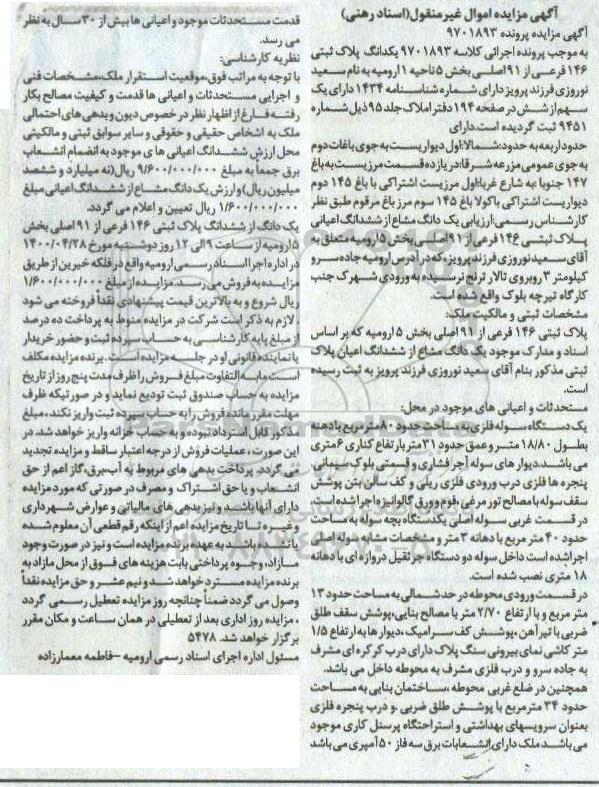 آگهی مزایده اموال غیرمنقول(اسناد رهنی)
آگهی مزایده پرونده ۹۷۰۱۸۹۳
به موجب پرونده اجرائی کلاسه ۹۷۰۱۸۹۳ یکدانگ پلاک ثبتی
۱۴۶ فرعی از ۹۱ اصلی بخش ۵ ناحیه ۱ ارومیه به نام سعید
نوروزی فرزند پرویز دارای شماره شناسنامه ۱۴۳۴ دارای یک
سهم از شش در صفحه ۱۹۴ دفتر املاک جلد ۹۵ ذیل شماره
۹۴۵۱ ثبت گردیده است.دارای
حدود اربعه به حدود:شمالا:اول دیواریست به جوی باغات دوم
به جوی عمومی مزرعه شرقا:در یازده قسمت مرزیست به باغ
۱۴۷ جنوبا :به شارع غربا:اول مرزیست اشتراکی با باغ ۱۴۵ دوم
دیواریست اشتراکی با کولا باغ ۱۴۵ سوم مرز باغ مرقوم طبق نظر
کارشناس رسمی:ارزیابی یک دانگ مشاع از ششدانگ اعیانی
پلاک ثبتی ۱۴۶ فرعی از ۹۱ اصلی بخش ۵ ارومیه متعلق به
آقای سعید نوروزی فرزند پرویز،که در آدرس ارومیه جاده سرو
کیلومتر ۳ روبروی تالار ترنج نرسیده به ورودی شهرک جنب
کارگاه تیرچه بلوک واقع شده است.
مشخصات ثبتی و مالکیت ملک:
پلاک ثبتی ۱۴۶ فرعی از ۹۱ اصلی بخش ۵ ارومیه که بر اساس
اسناد و مدارک موجود یک دانگ مشاع از ششدانگ اعیان پلاک
ثبتی مذکور بنام آقای سعید نوروزی فرزند پرویز به ثبت رسیده
است.
مستحدثات و اعیانی های موجود در محل:
یک دستگاه سوله فلزی به مساحت حدود ۸۰ متر مربع با دهنه
بطول ۱۸/۸۰ متر و عمق حدود ۳۱ متر بارتفاع کناری ۶ متری
می باشد.دیوار های سوله آجر فشاری و قسمتی بلوک سیمانی،
پنجره ها فلزی درب ورودی فلزی ریلی و کف سالن بتن پوشش
سقف سوله با مصالح تور مرغی،فوم و ورق گالوانیزه اجرا شده است.
در قسمت غربی سوله اصلی یکدستگاه بچه سوله به مساحت
حدود ۴۰ متر مربع با دهانه ۳ متر و مشخصات مشابه سوله اصلی
اجرا شده است داخل سوله دو دستگاه جرثقیل دروازه ای با دهانه
۱۸ متری نصب شده است.
در قسمت ورودی محوطه در حد شمالی به مساحت حدود ۱۳
متر مربع و با ارتفاع ۲/۷۰ متر با مصالح بنایی،پوشش سقف طلق
ضربی با تیرآهن ،پوشش کف سرامیک ،دیوار ها به ارتفاع ۱/۵
متر کاشی نمای بیرونی سنگ پلاک دارای درب کرکره ای مشرف
به جاده سرو و درب فلزی مشرف به محوطه داخل می باشد.
همچنین در ضلع غربی محوطه ،ساختمان بنایی به مساحت
حدود ۳۴ متر مربع با پوشش طلق ضربی .و درب پنجره فلزی
بعنوان سرویسهای بهداشتی و استراحتگاه پرسنل کاری موجود
می باشد ملک دارای انشعابات برق سه فاز ۵۰ آمپری می باشد
قدمت مستحدثات موجود و اعیانی ها بیش از ۳۰ سال به نظر
می رسد.
نظریه کارشناسی:
با توجه به مراتب فوق،موقعیت استقرار ملک،مشخصات فنی
و اجرایی مستحدثات و اعیانی ها قدمت و کیفیت مصالح بکار
رفته فارغ از اظهار نظر در خصوص دیون و بدهی های احتمالی
ملک به اشخاص حقیقی و حقوقی و سایر سوابق ثبتی و مالکیتی
محل ارزش ششدانگ اعیانی ها ی موجود به انضمام انشعاب
برق جمعاً به مبلغ ۹/۶۰۰/۰۰۰/۰۰۰ ریال(نه میلیارد و ششصد
میلیون ریال) و ارزش یک دانگ مشاع از ششدانگ اعیانی مبلغ
۱/۶۰۰/۰۰۰/۰۰۰ ریال تعیین و اعلام می گردد.
یک دانگ از ششدانگ پلاک ثبتی ۱۴۶ فرعی از ۹۱ اصلی بخش
۵ ارومیه از ساعت ۹ الی ۱۲ روز دوشنبه مورخ ۱۴۰۰/۰۴/۲۸
در اداره اجرا اسناد رسمی ارومیه واقع در فلکه خیرین از طریق
مزایده به فروش می رسد.مزایده از مبلغ ۱/۶۰۰/۰۰۰/۰۰۰
ریال شروع و به بالاترین قیمت پیشنهادی نقدا فروخته می شود
. لازم به ذکر است شرکت در مزایده منوط به پرداخت ده درصد
از مبلغ پایه کارشناسی به حساب سپرده ثبت و حضور خریدار
یا نماینده قانونی او در جلسه مزایده است . برنده مزایده مکلف
است مابه التفاوت مبلغ فروش را ظرف مدت پنج روز از تاریخ
مزایده به حساب صندوق ثبت تودیع نماید و در صورتیکه ظرف
مهلت مقرر مانده فروش را به حساب سپرده ثبت واریز نکند ، مبلغ
مذکور قابل استرداد نبوده و به حساب خزانه واریز خواهد شد. در
این صورت ، عملیات فروش از درجه اعتبار ساقط و مزایده تجدید
می گردد. پرداخت بدهی های مربوط به آب،برق،گاز اعم از حق
انشعاب و یا حق اشتراک و مصرف در صورتی که مورد مزایده
دارای آنها باشد و نیز بدهی های مالیاتی و عوارض شهرداری
و غیره تا تاریخ مزایده اعم از اینکه رقم قطعی آن معلوم شده
یا نشده باشد به عهده برنده مزایده است و نیز در صورت وجود
مازاد، وجوه پرداختی بابت هزینه های فوق از محل مازاد به
برنده مزایده مسترد خواهد شد و نیم عشر و حق مزایده نقداً
وصول می گردد ضمناً چنانچه روز مزایده تعطیل رسمی گردد
، مزایده روز اداری بعد از تعطیلی در همان ساعت و مکان مقرر
برگزار خواهد شد. ۵۴۷۸
مسئول اداره اجرای اسناد رسمی ارومیه –فاطمه معمارزاده